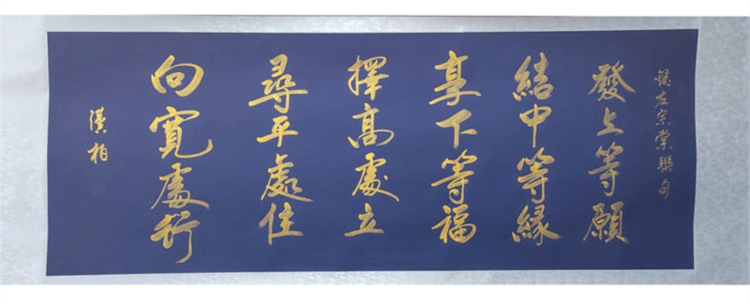 錄左宗棠聯句
發上等願
結中等緣
享下等福
擇高處立
尋平處住
向寬處行
漢柏